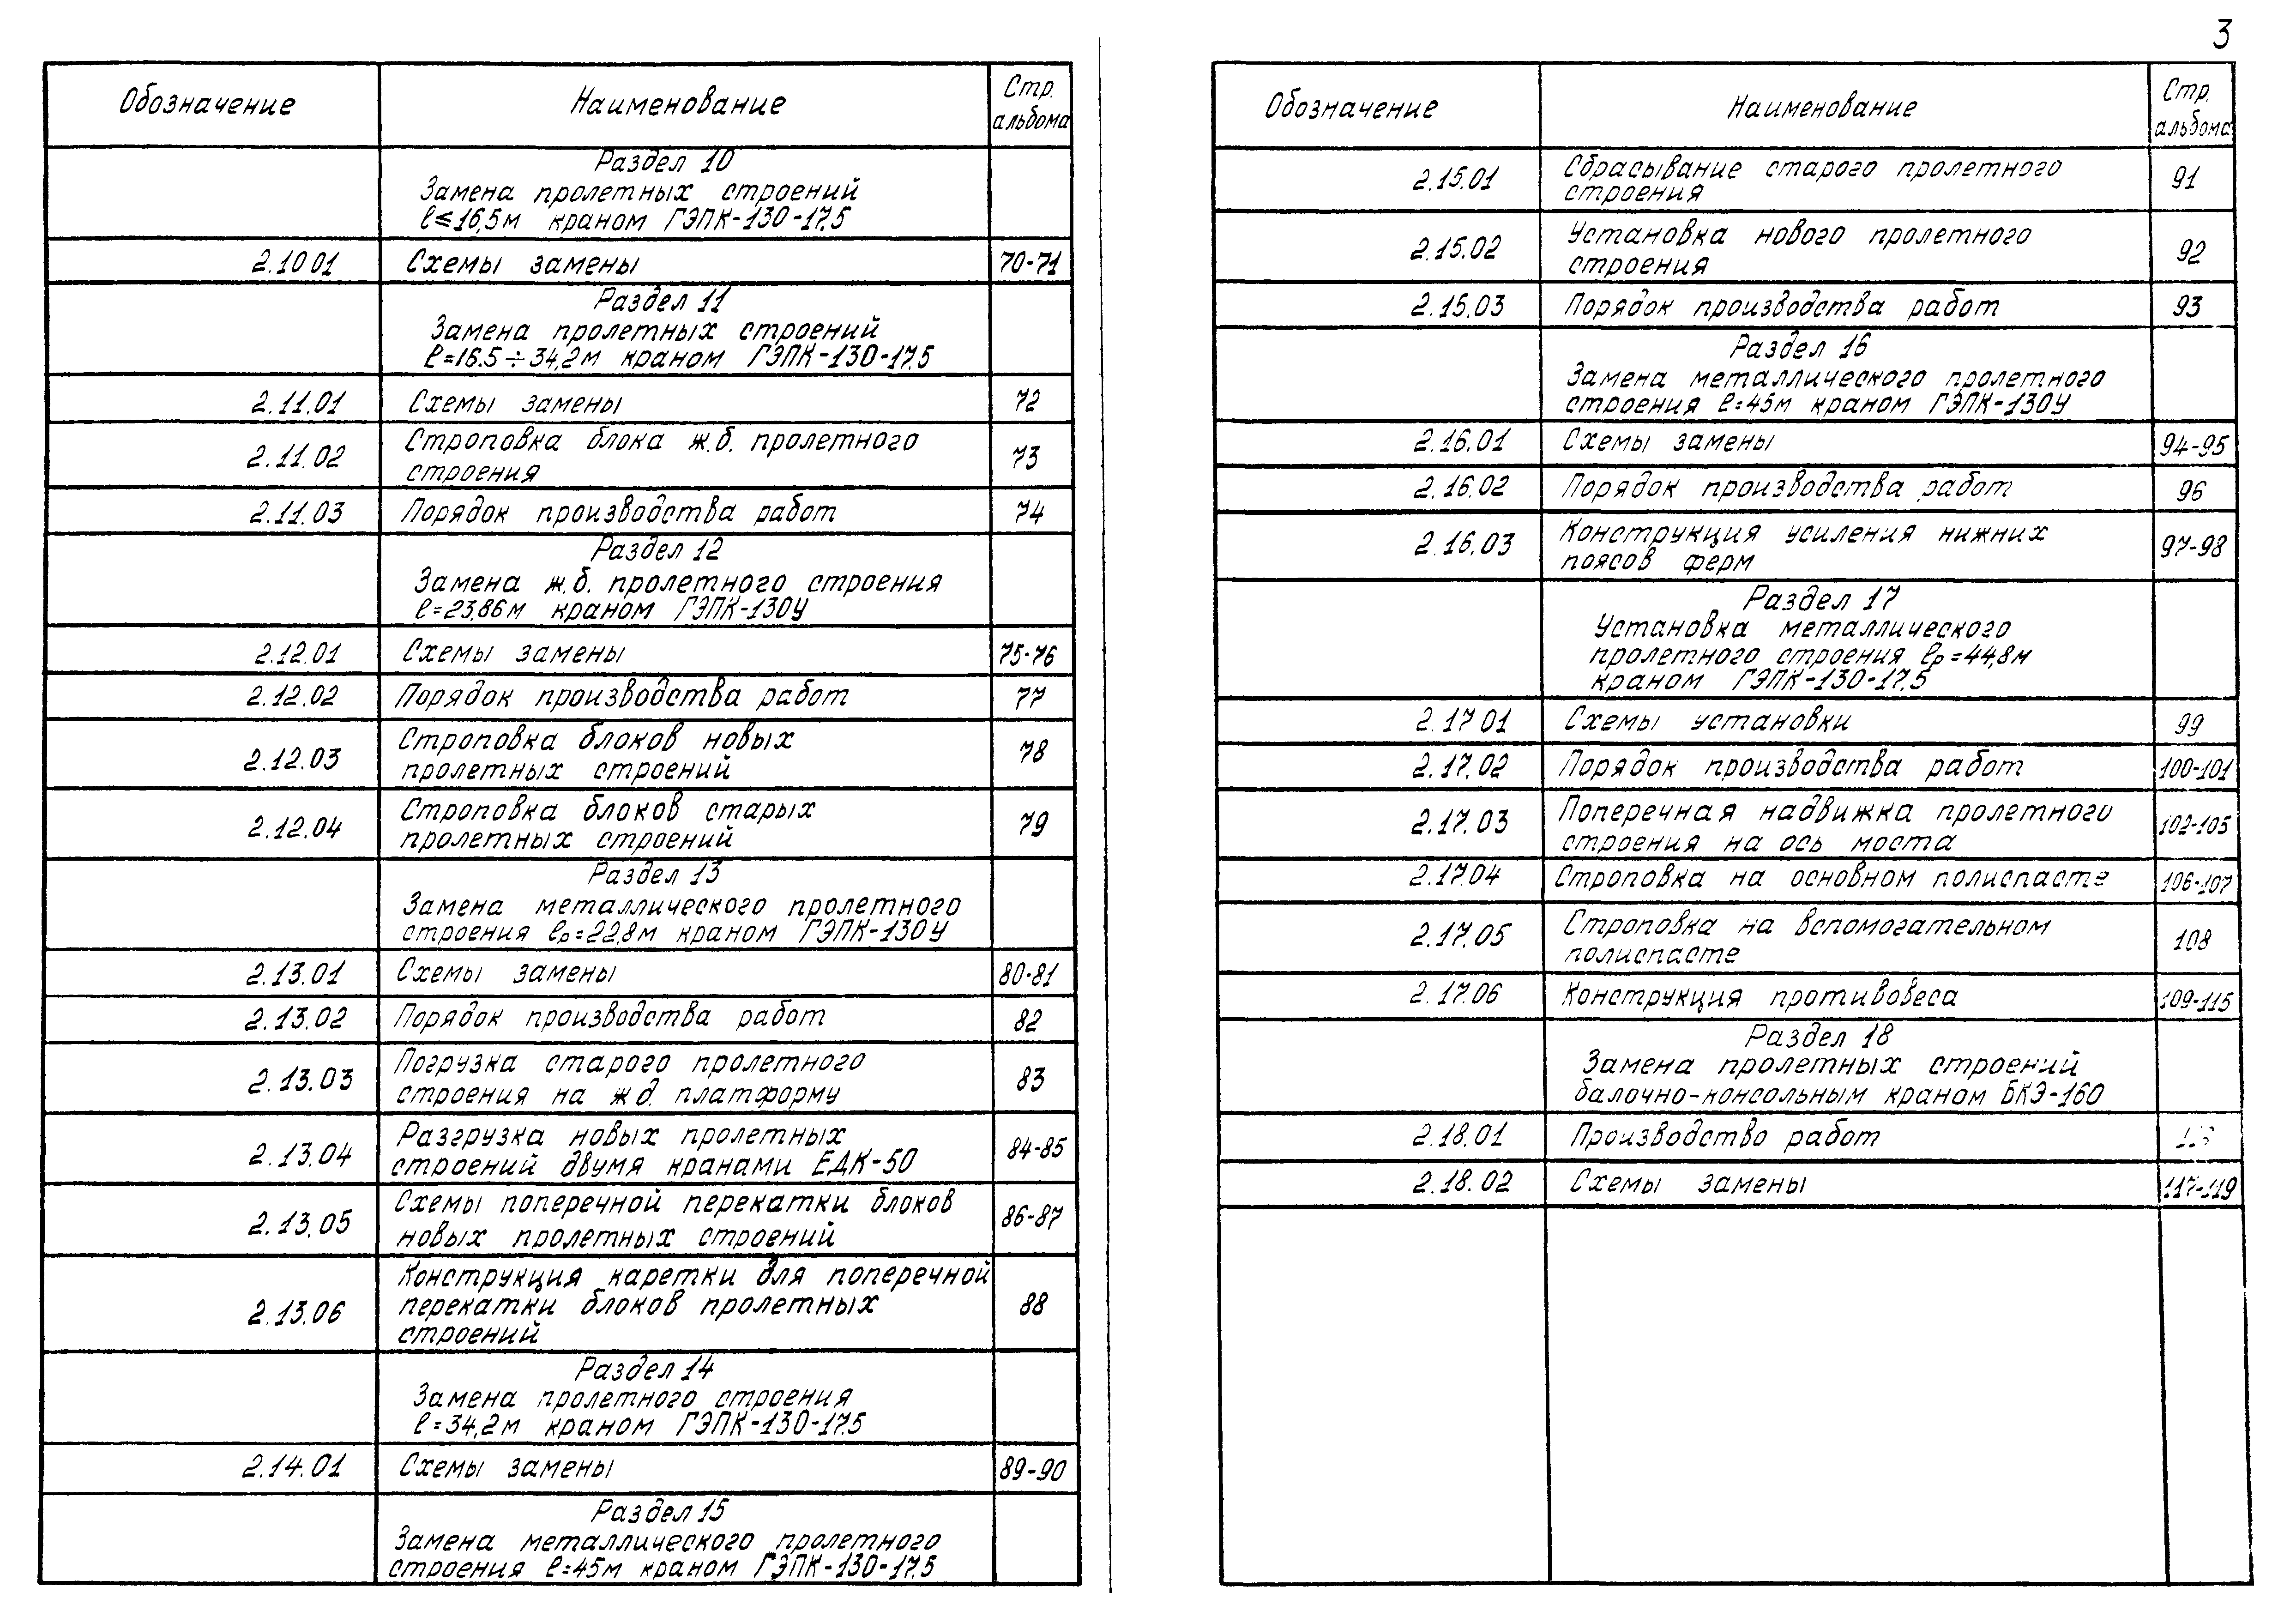 3
Обозначение Наименование Стр. альбома
Раздел 10
Замена пролетных строений
ℓ≤16,5м краном ГЭПК-130-17,5
2.10 01 Схемы замены 70-71
Раздел 11
Замена пролетных строений
ℓ=16.5÷34,2м краном ГЭПК-130-17,5
2.11.01 Схемы замены 72
2.11.02 Строповка блока ж.б. пролетного
строения 73
2.11.03 Порядок производства работ 74
Раздел 12
Замена ж.б. пролетного строения
ℓ=23,86м краном ГЭПК-130У
2.12.01 Схемы замены 75-76
2.12.02 Порядок производства работ 77
2.12.03 Строповка блоков новых
пролетных строений 78
2.12.04 Строповка блоков старых
пролетных строений 79
Раздел 13
Замена металлического пролетного
строения ℓр=22,8м краном ГЭПК-130У
2.13.01 Схемы замены 80-81
2.13.02 Порядок производства работ 82
2.13.03 Погрузка старого пролетного
строения на ж д. платформу 83
2.13.04 Разгрузка новых пролетных
строений двумя кранами ЕДК-50 84-85
2.13.05 Схемы поперечной перекатки блоков
новых пролетных строений 86-87
2.13.06 Конструкция каретки для поперечной
перекатки блоков пролетных
строений 88
Раздел 14
Замена пролетного строения
ℓ=34,2м краном ГЭПК-130-17,5
2.14.01 Схемы замены 89-90
Раздел 15
Замена металлического пролетного
строения ℓ=45м краном ГЭПК-130-17,5
Обозначение Наименование Стр. альбома
2.15.01 Сбрасывание старого пролетного
строения 91
2.15.02 Установка нового пролетного
строения 92
2.15.03 Порядок производства работ 93
Раздел 16
Замена металлического пролетного
строения ℓ=45м краном ГЭПК-130У
2.16.01 Схемы замены 94-95
2.16.02 Порядок производства работ 96
2.16.03 Конструкция усиления нижних
поясов ферм 97-98
Раздел 17
Установка металлического
пролетного строения ℓр=44,8м
краном ГЭПК-130-17,5
2.17 01 Схемы установки 99
2.17.02 Порядок производства работ 100-101
2.17.03 Поперечная надвижка пролетного
строения на ось моста 102-105
2.17.04 Строповка на основном полиспасте 106-107
2.17.05 Строповка на вспомогательном
полиспасте 108
2.17.06 Конструкция противовеса 109-115
Раздел 18
Замена пролетных строений
балочно-консольным краном БКЭ-160
2.18.01 Производство работ
2.18.02 Схемы замены 117-119